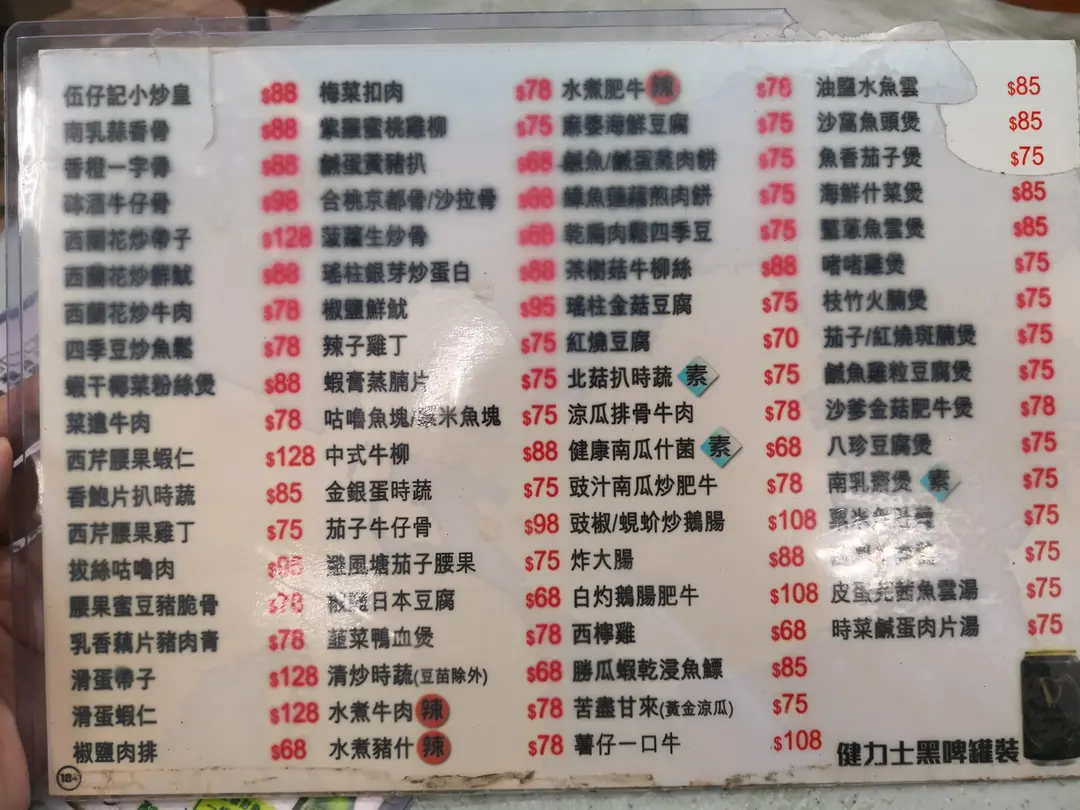 伍仔記小炒皇 $88
南乳蒜香骨 $88
香橙一字骨 $88
砵酒牛仔骨 $98
西蘭花炒帶子 $128
西蘭花炒鮮魷 $88
西蘭花炒牛肉 $78
四季豆炒魚鬆 $78
蝦干椰菜粉絲煲 $88
菜遠牛肉 $78
西芹腰果蝦仁 $128
香鮑片扒時蔬 $85
西芹腰果雞丁 $75
拔絲咕嚕肉
腰果蜜豆豬脆骨 $78
乳香藕片豬肉青 $78
滑蛋帶子 $128
滑蛋蝦仁 $128
椒鹽肉排 $68
184
梅菜扣肉 $78
紫羅蜜桃雞柳 $75
鹹蛋黃豬扒 $68
合桃京都骨/沙拉骨
菠蘿生炒骨 $68
瑤柱銀芽炒蛋白 $88
椒鹽鮮魷 $95
辣子雞丁 $75
蝦膏蒸腩片 $75
咕嚕魚塊/粟米魚塊 $75
中式牛柳 $88
金銀蛋時蔬 $75
茄子牛仔骨 $98
避風塘茄子腰果 $75
椒鹽日本豆腐 $68
韮菜鴨血煲 $78
清炒時蔬(豆苗除外) $68
水煮牛肉 辣 $78
水煮豬什 辣 $78
水煮肥牛 辣 $78
麻婆海鮮豆腐 $75
鹹魚/鹹蛋蒸肉餅 $75
蓮藕煎肉餅 $75
乾扁肉鬆四季豆 $75
茶樹菇牛柳絲 $88
瑤柱金菇豆腐 $75
紅燒豆腐 $70
北菇扒時蔬 素 $75
涼瓜排骨牛肉 $78
健康南瓜什菌 素 $68
豉汁南瓜炒肥牛 $78
豉椒/蜆蚧炒鵝腸 $108
炸大腸 $88
白灼鵝腸肥牛 $108
西檸雞 $68
勝瓜蝦乾浸魚鰾 $85
苦盡甘來(黃金涼瓜) $75
薯仔一口牛 $108
油鹽水魚雲 $85
沙窩魚頭煲 $85
魚香茄子煲 $75
海鮮什菜煲 $85
薑蔥魚雲煲 $85
啫啫雞煲 $75
枝竹火腩煲 $75
茄子/紅燒斑腩煲 $75
鹹魚雞粒豆腐煲 $75
沙爹金菇肥牛煲 $78
八珍豆腐煲 $75
南乳齋煲 素 $75
$75
$75
皮蛋芫茜魚雲湯 $75
時菜鹹蛋肉片湯 $75
健力士黑啤罐裝